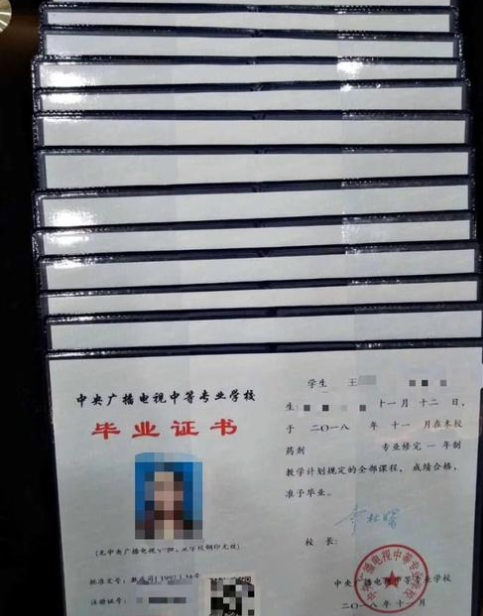 中央广播电视中等专业学校
毕业证书
(无中央广播电视
钢印无效)
批准文号：
注册证号：
学生 王
生
十一月 十二 日，
于 二〇一八 年 十一 月在本校
药剂 专业修完 一 年制
教学计划规定的全部课程，成绩合格，
准予毕业。
校 长：
中央广播电视中等专业学校
二〇一八 年 十一 月
中央广播电视中等专业学校